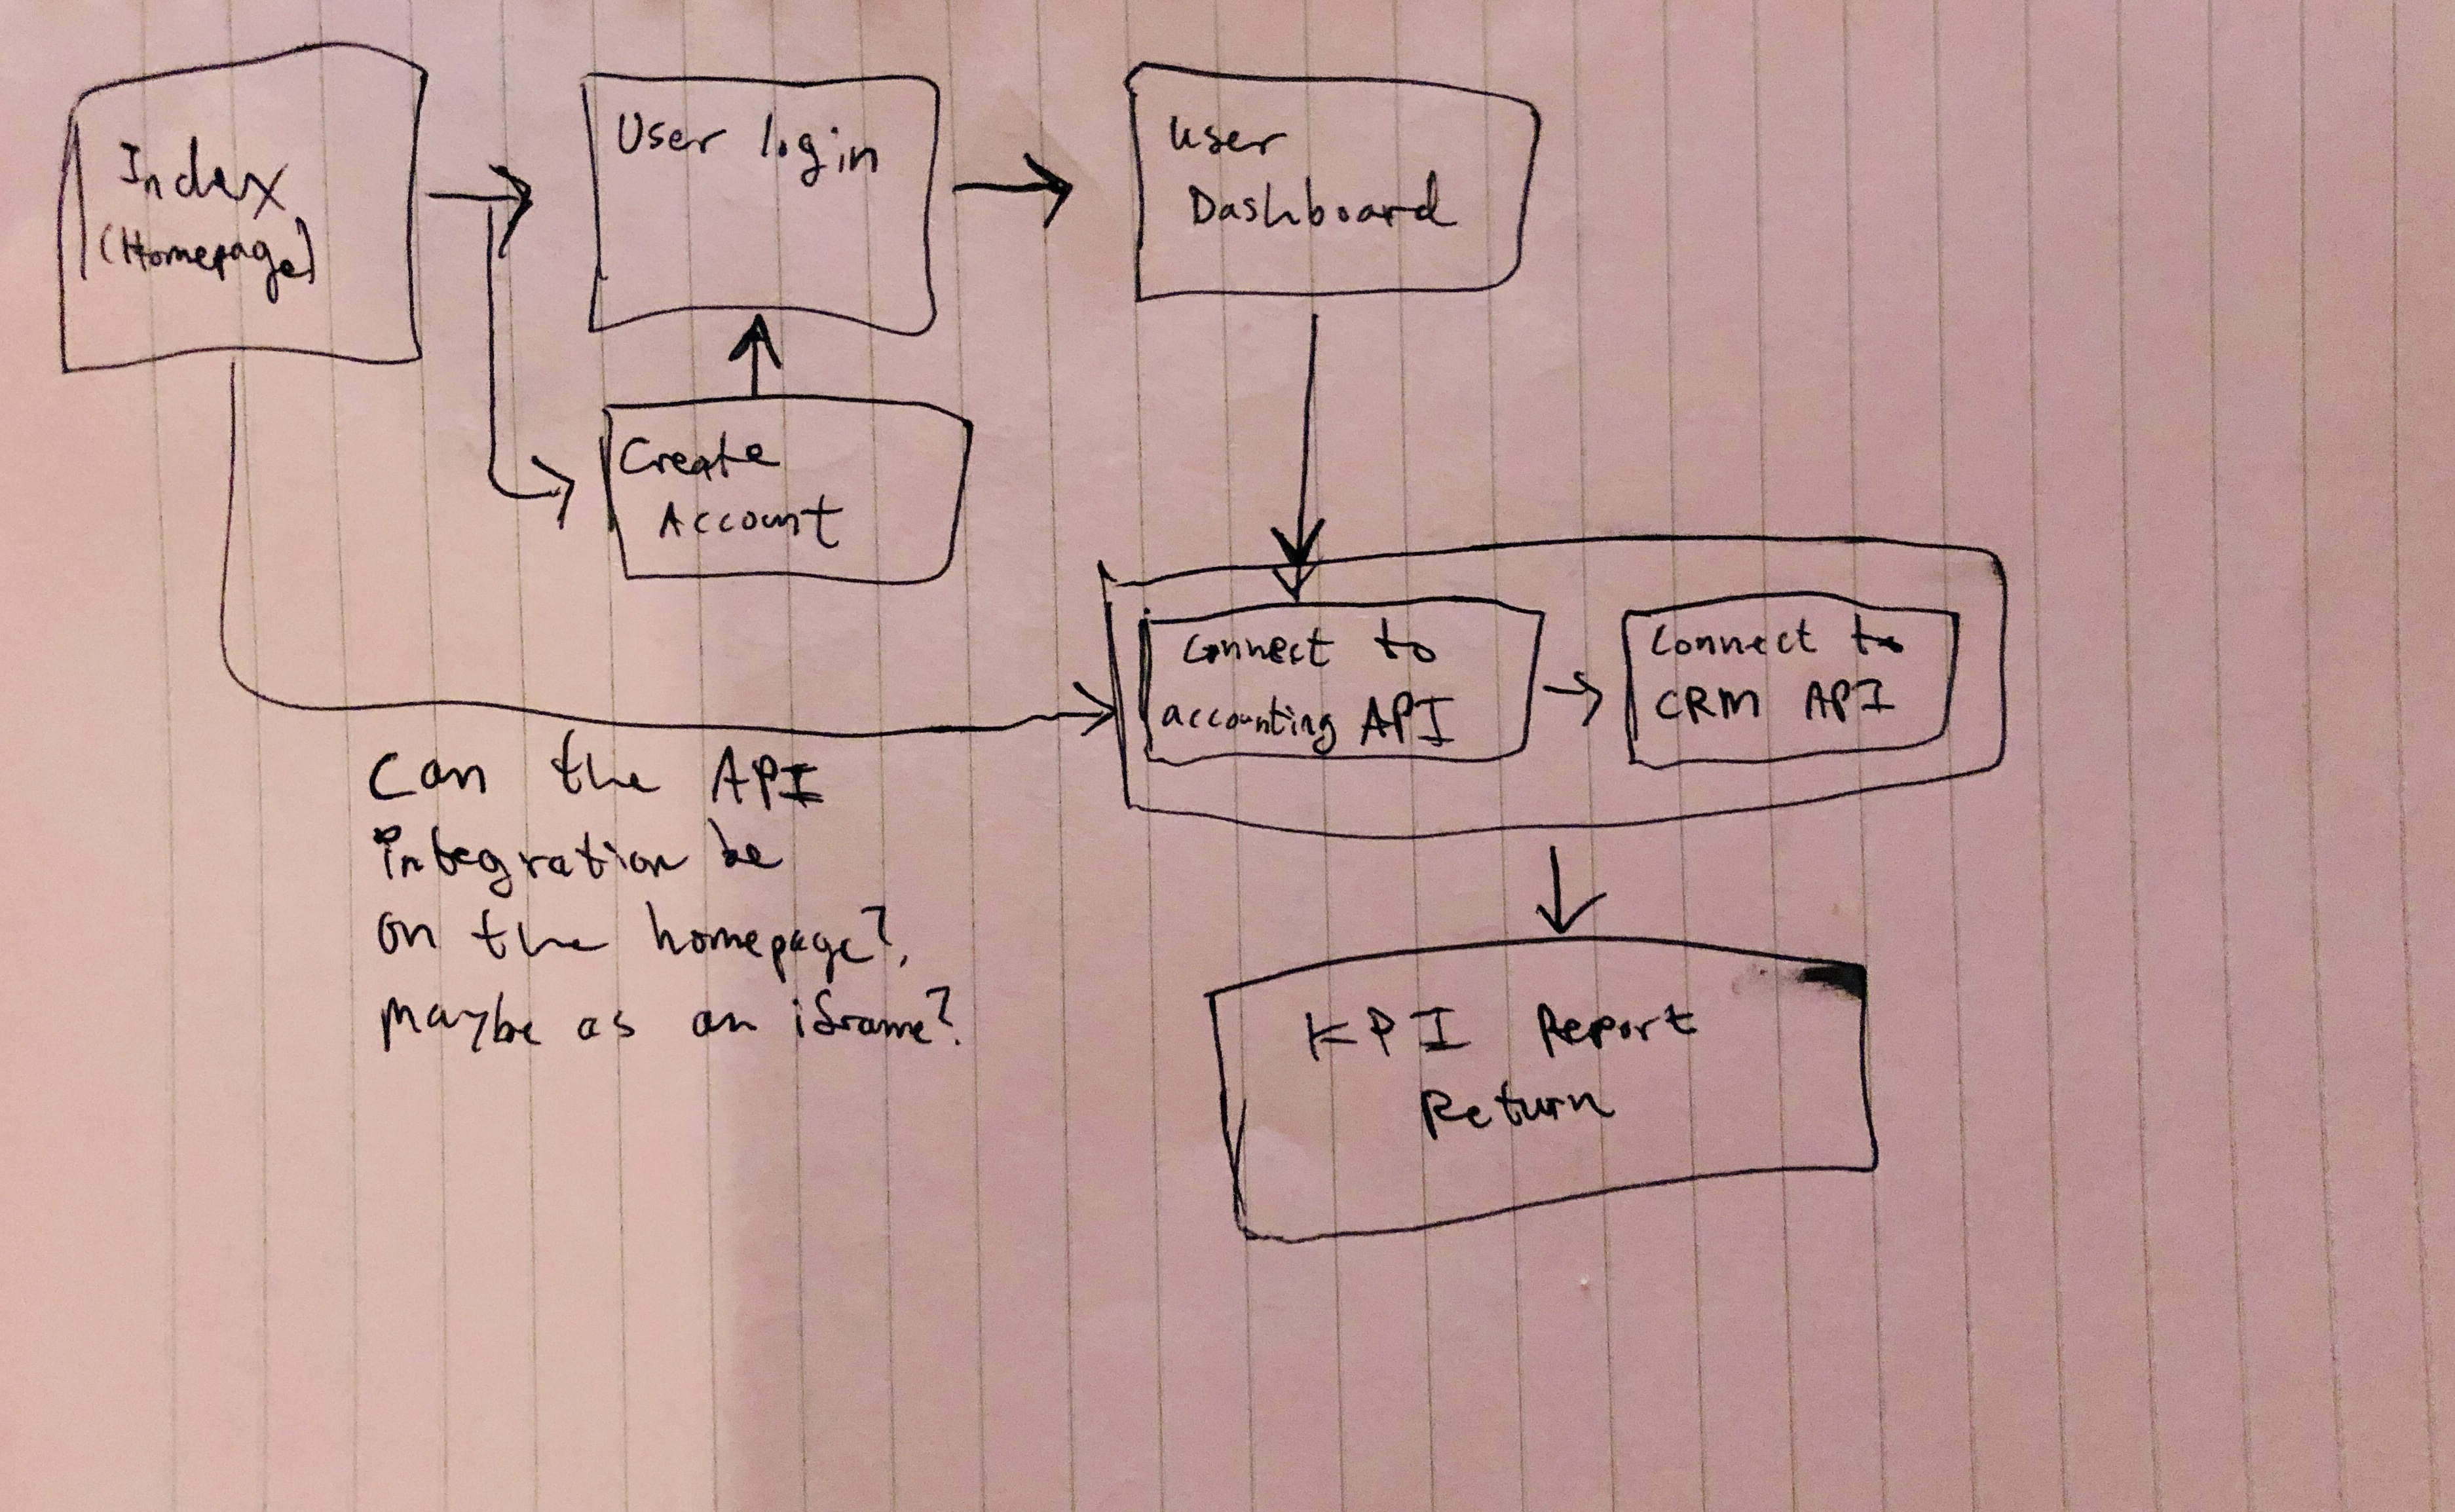 Index
(Homepage)
User login
User
Dashboard
Create
Account
Connect to
accounting API
Connect to
CRM API
Can the API
integration be
on the homepage?
maybe as an iframe?
KPI Report
Return